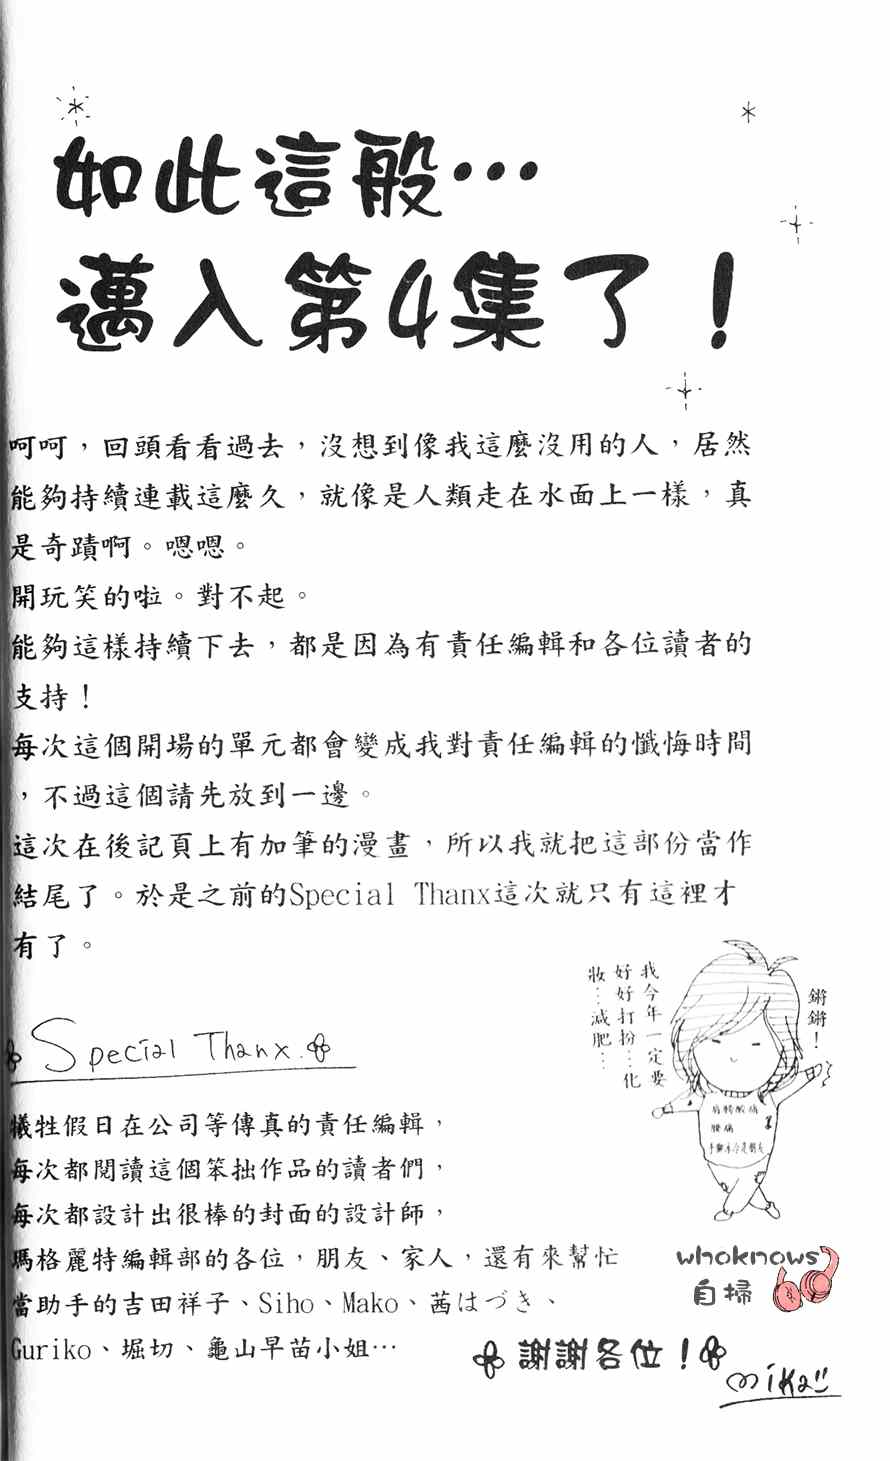 如此這般…
邁入第4集了！
呵呵，回頭看看過去，沒想到像我這麼沒用的人，居然
能夠持續連載這麼久，就像是人類走在水面上一樣，真
是奇蹟啊。嗯嗯。
開玩笑的啦。對不起。
能夠這樣持續下去，都是因為有責任編輯和各位讀者的
支持！
每次這個開場的單元都會變成我對責任編輯的懺悔時間
，不過這個請先放到一邊。
這次在後記頁上有加筆的漫畫，所以我就把這部份當作
結尾了。於是之前的Special Thanx這次就只有這裡才
有了。
鏘鏘！
我今年一定要
好好打扮…化
妝…減肥…
肩膀酸痛
腰痛
手腳冰冷是朋友
Special Thanx.
犧牲假日在公司等傳真的責任編輯，
每次都閱讀這個笨拙作品的讀者們，
每次都設計出很棒的封面的設計師，
瑪格麗特編輯部的各位，朋友、家人，還有來幫忙
當助手的吉田祥子、Siho、Mako、茜はづき、
Guriko、堀切、龜山早苗小姐…
whoknows
自掃
謝謝各位！
mika!!